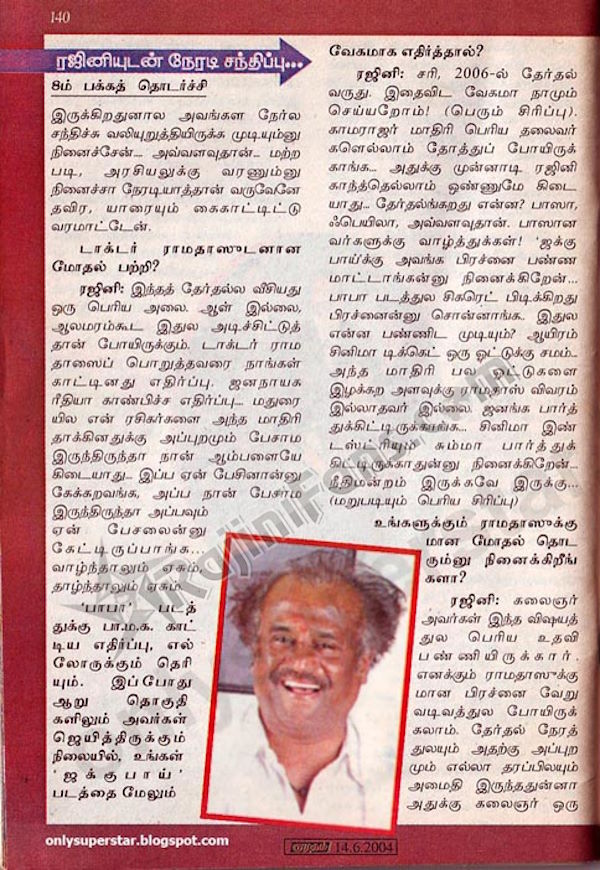 140
ரஜினியுடன் நேரடி சந்திப்பு...
8ம் பக்கத் தொடர்ச்சி
இருக்கிறதுனால அவங்கள நேர்ல
சந்திச்சு வலியுறுத்தியிருக்க முடியும்னு
நினைச்சேன்... அவ்வளவுதான்... மற்ற
படி, அரசியலுக்கு வரணும்னு
நினைச்சா நேரடியாத்தான் வருவேனே
தவிர, யாரையும் கைகாட்டிட்டு
வரமாட்டேன்.
டாக்டர் ராமதாஸுடனான
மோதல் பற்றி?
ரஜினி: இந்தத் தேர்தல்ல வீசியது
ஒரு பெரிய அலை. ஆள் இல்லை,
ஆலமரம்கூட இதுல அடிச்சிட்டுத்
தான் போயிருக்கும். டாக்டர் ராம
தாஸைப் பொறுத்தவரை நாங்கள்
காட்டினது எதிர்ப்பு. ஜனநாயக
ரீதியா காண்பிச்ச எதிர்ப்பு... மதுரை
யில என் ரசிகர்களை அந்த மாதிரி
தாக்கினதுக்கு அப்புறமும் பேசாம
இருந்திருந்தா நான் ஆம்பளையே
கிடையாது... இப்ப ஏன் பேசினான்னு
கேக்கறவங்க, அப்ப நான் பேசாம
இருந்திருந்தா அப்பவும்
ஏன் பேசலைன்னு
கேட்டிருப்பாங்க...
வாழ்ந்தாலும் ஏசும்,
தாழ்ந்தாலும் ஏசும்.
'பாபா' படத்
துக்கு பா.ம.க. காட்
டிய எதிர்ப்பு, எல்
லோருக்கும் தெரி
யும். இப்போது
ஆறு தொகுதி
களிலும் அவர்கள்
ஜெயித்திருக்கும்
நிலையில், உங்கள்
'ஜக்குபாய்'
படத்தை மேலும்
வேகமாக எதிர்த்தால்?
ரஜினி: சரி, 2006-ல் தேர்தல்
வருது. இதைவிட வேகமா நாமும்
செய்யறோம்! (பெரும் சிரிப்பு).
காமராஜர் மாதிரி பெரிய தலைவர்
களெல்லாம் தோத்துப் போயிருக்
காங்க... அதுக்கு முன்னாடி ரஜினி
காந்த்தெல்லாம் ஒண்ணுமே கிடை
யாது... தேர்தல்ங்கறது என்ன? பாஸா,
ஃபெயிலா, அவ்வளவுதான். பாஸான
வர்களுக்கு வாழ்த்துக்கள்! 'ஜக்கு
பாய்'க்கு அவங்க பிரச்னை பண்ண
மாட்டாங்கன்னு நினைக்கிறேன்...
பாபா படத்துல சிகரெட் பிடிக்கிறது
பிரச்னைன்னு சொன்னாங்க. இதுல
என்ன பண்ணிட முடியும்? ஆயிரம்
சினிமா டிக்கெட் ஒரு ஓட்டுக்கு சமம்..
அந்த மாதிரி பல ஓட்டுகளை
இழக்கற அளவுக்கு ராமதாஸ் விவரம்
இல்லாதவர் இல்லை. ஜனங்க பார்த்
துக்கிட்டிருக்காங்க... சினிமா இண்
டஸ்ட்ரியும் சும்மா பார்த்துக்
கிட்டிருக்காதுன்னு நினைக்கிறேன்...
நீதிமன்றம் இருக்கவே இருக்கு...
(மறுபடியும் பெரிய சிரிப்பு)
உங்களுக்கும் ராமதாஸுக்கு
மான மோதல் தொட
ரும்னு நினைக்கிறீங்
களா?
ரஜினி: கலைஞர்
அவர்கள் இந்த விஷயத்
துல பெரிய உதவி
பண்ணியிருக்கார்.
எனக்கும் ராமதாஸுக்கு
மான பிரச்னை வேறு
வடிவத்துல போயிருக்
கலாம். தேர்தல் நேரத்
துலயும் அதற்கு அப்புற
மும் எல்லா தரப்பிலயும்
அமைதி இருந்ததுன்னா
அதுக்கு கலைஞர் ஒரு
onlysuperstar.blogspot.com
14.6.2004